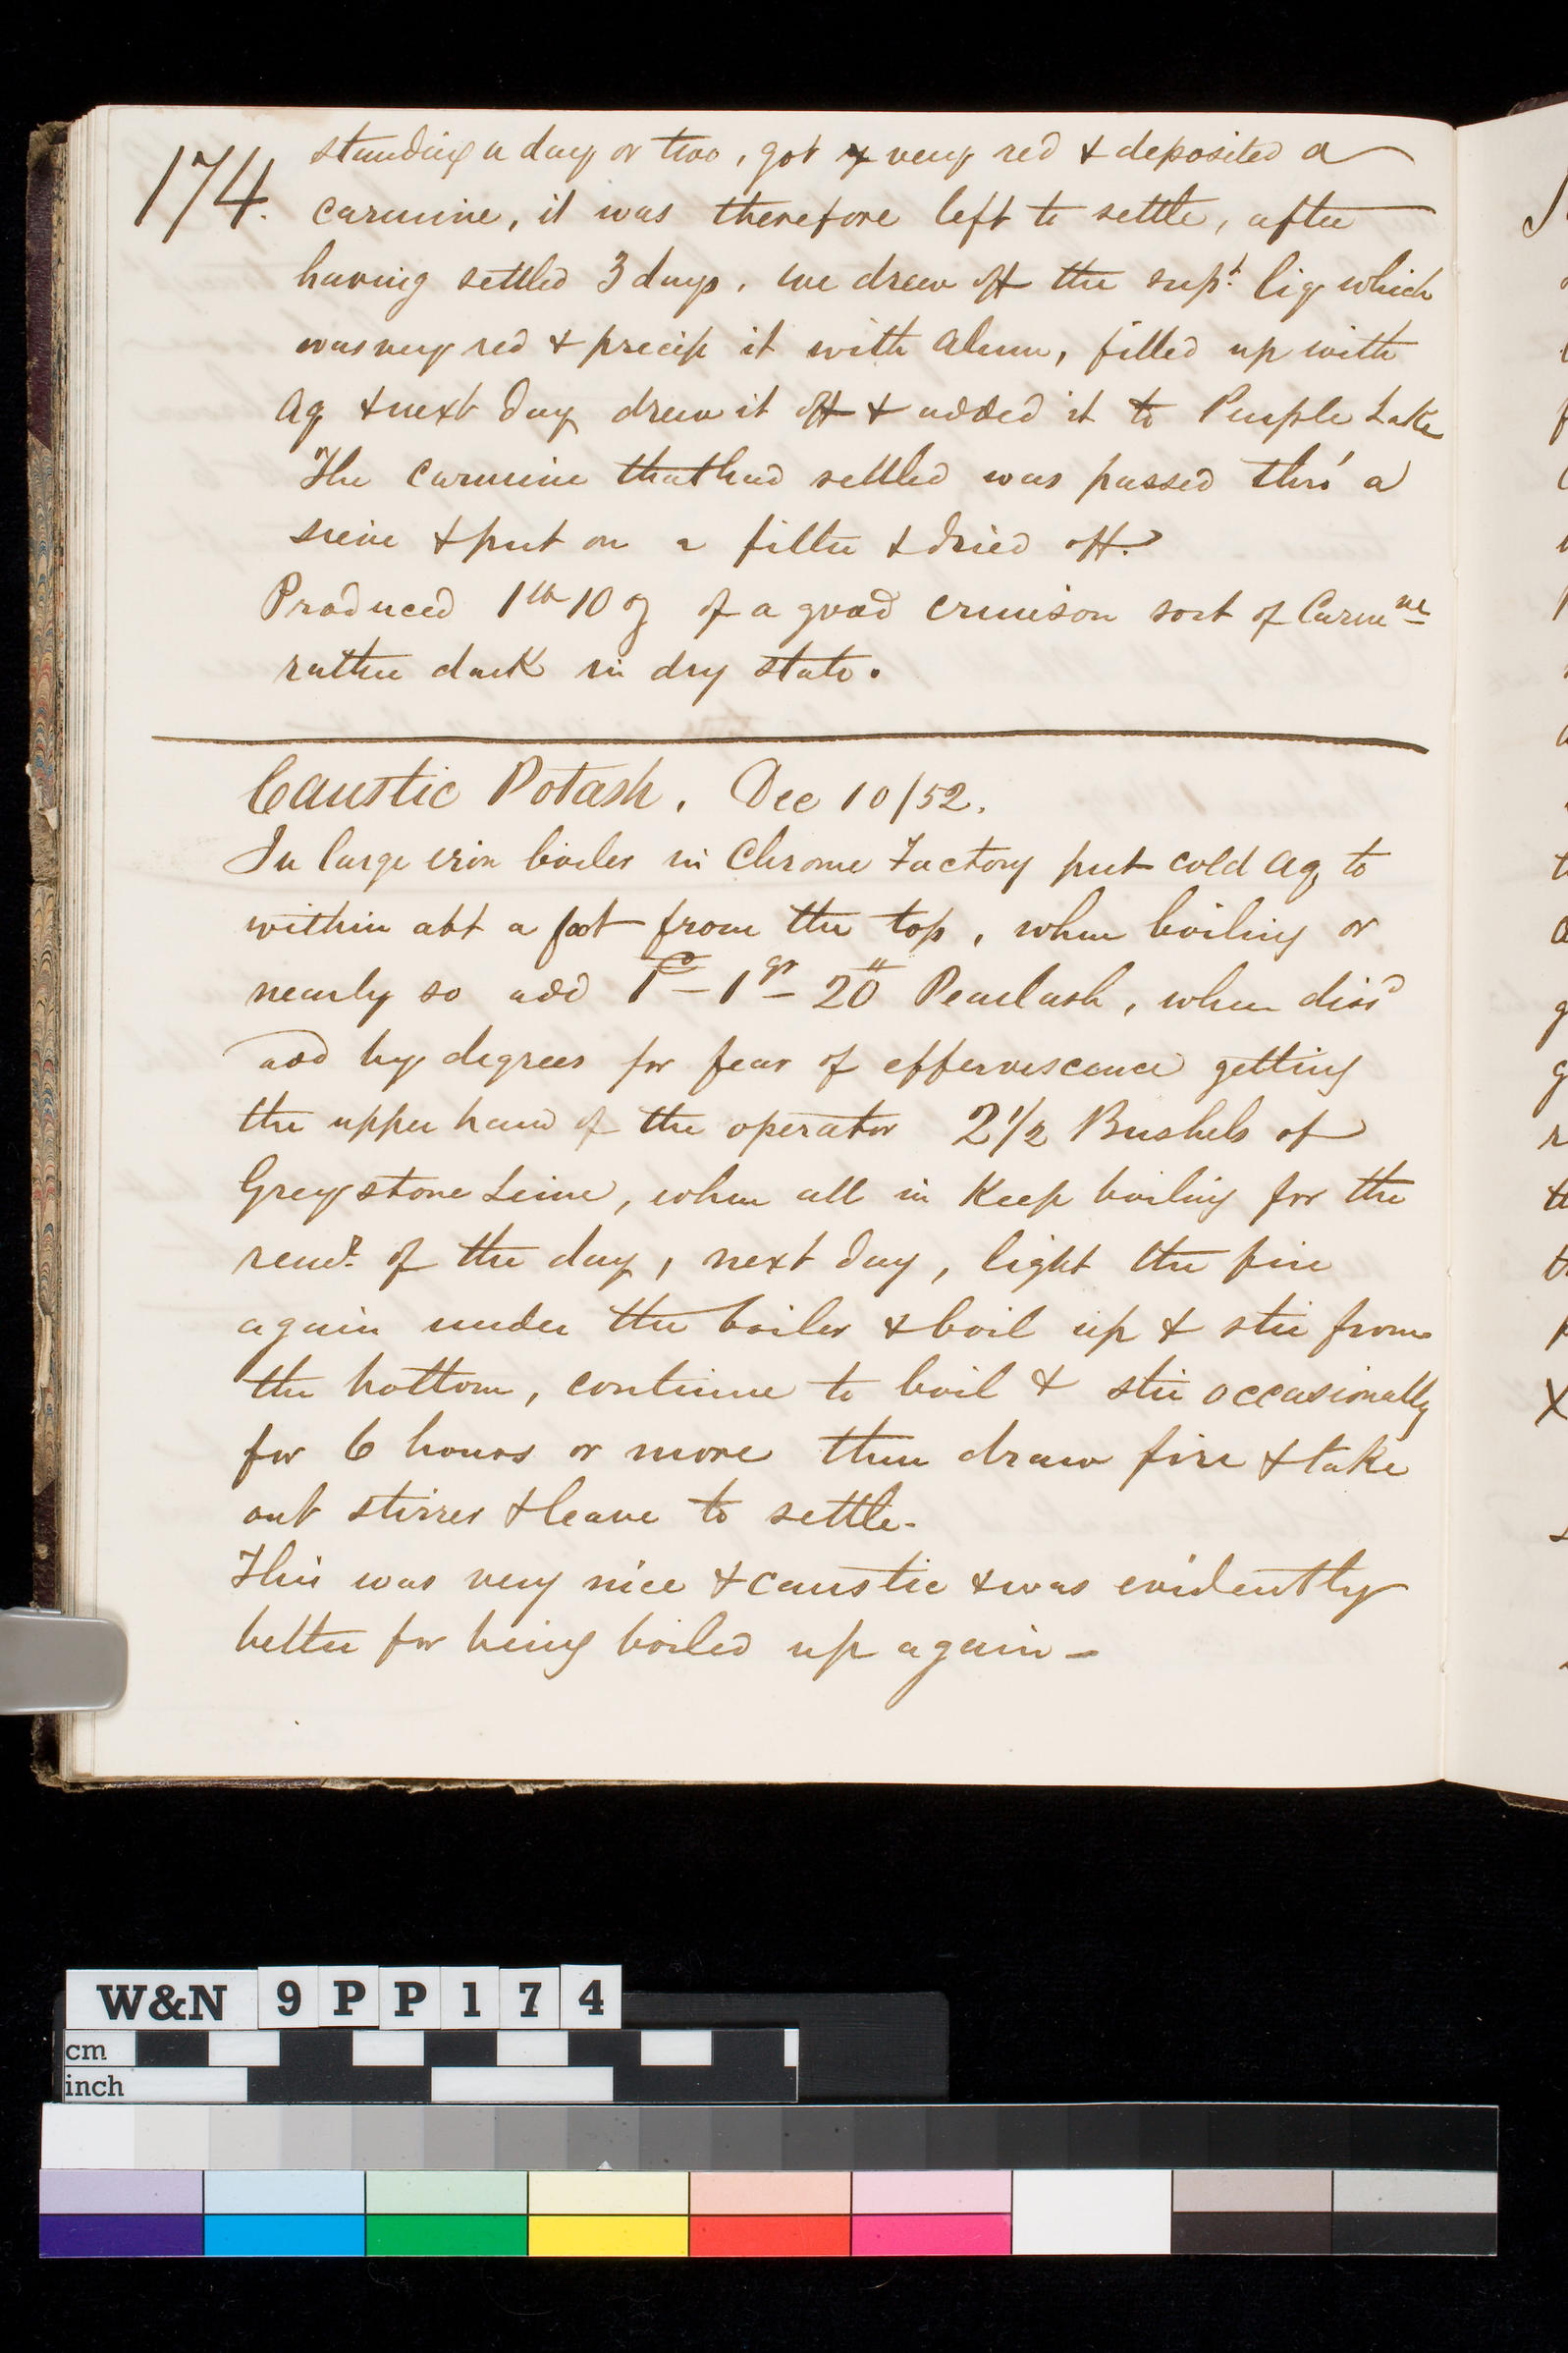 174.
standing a day or two, got very red & deposited a
carmine, it was therefore left to settle, after
having settled 3 days, we drew off the supt liq which
was very red & precip it with alum, filled up with
aq & next day drew it off & added it to Purple Lake
The carmine that had settled was passed thro' a
sieve & put on a filter & dried off.
Produced 1lb 10 oz of a good crimson sort of Carmne
rather dark in dry state.
Caustic Potash. Dec 10/52.
In large iron boiler in Chrome Factory put cold aq, to
within abt a foot from the top, when boiling or
nearly so add 1c – 1qr – 20 Pearlash, when dissd
add by degrees for fear of effervescence getting
the upper hand of the operator 2 1/2 Bushels of
Greystone Lime, when all in Keep boiling for the
remr of the day, next day, light the fire
again under the boiler & boil up & stir from
the bottom, continue to boil & stir occasionally
for 6 hours or more then draw fire & take
out stirrer & leave to settle.
This was very nice & caustic & was evidently
better for being boiled up again –
W&N 9PP174
cm
inch